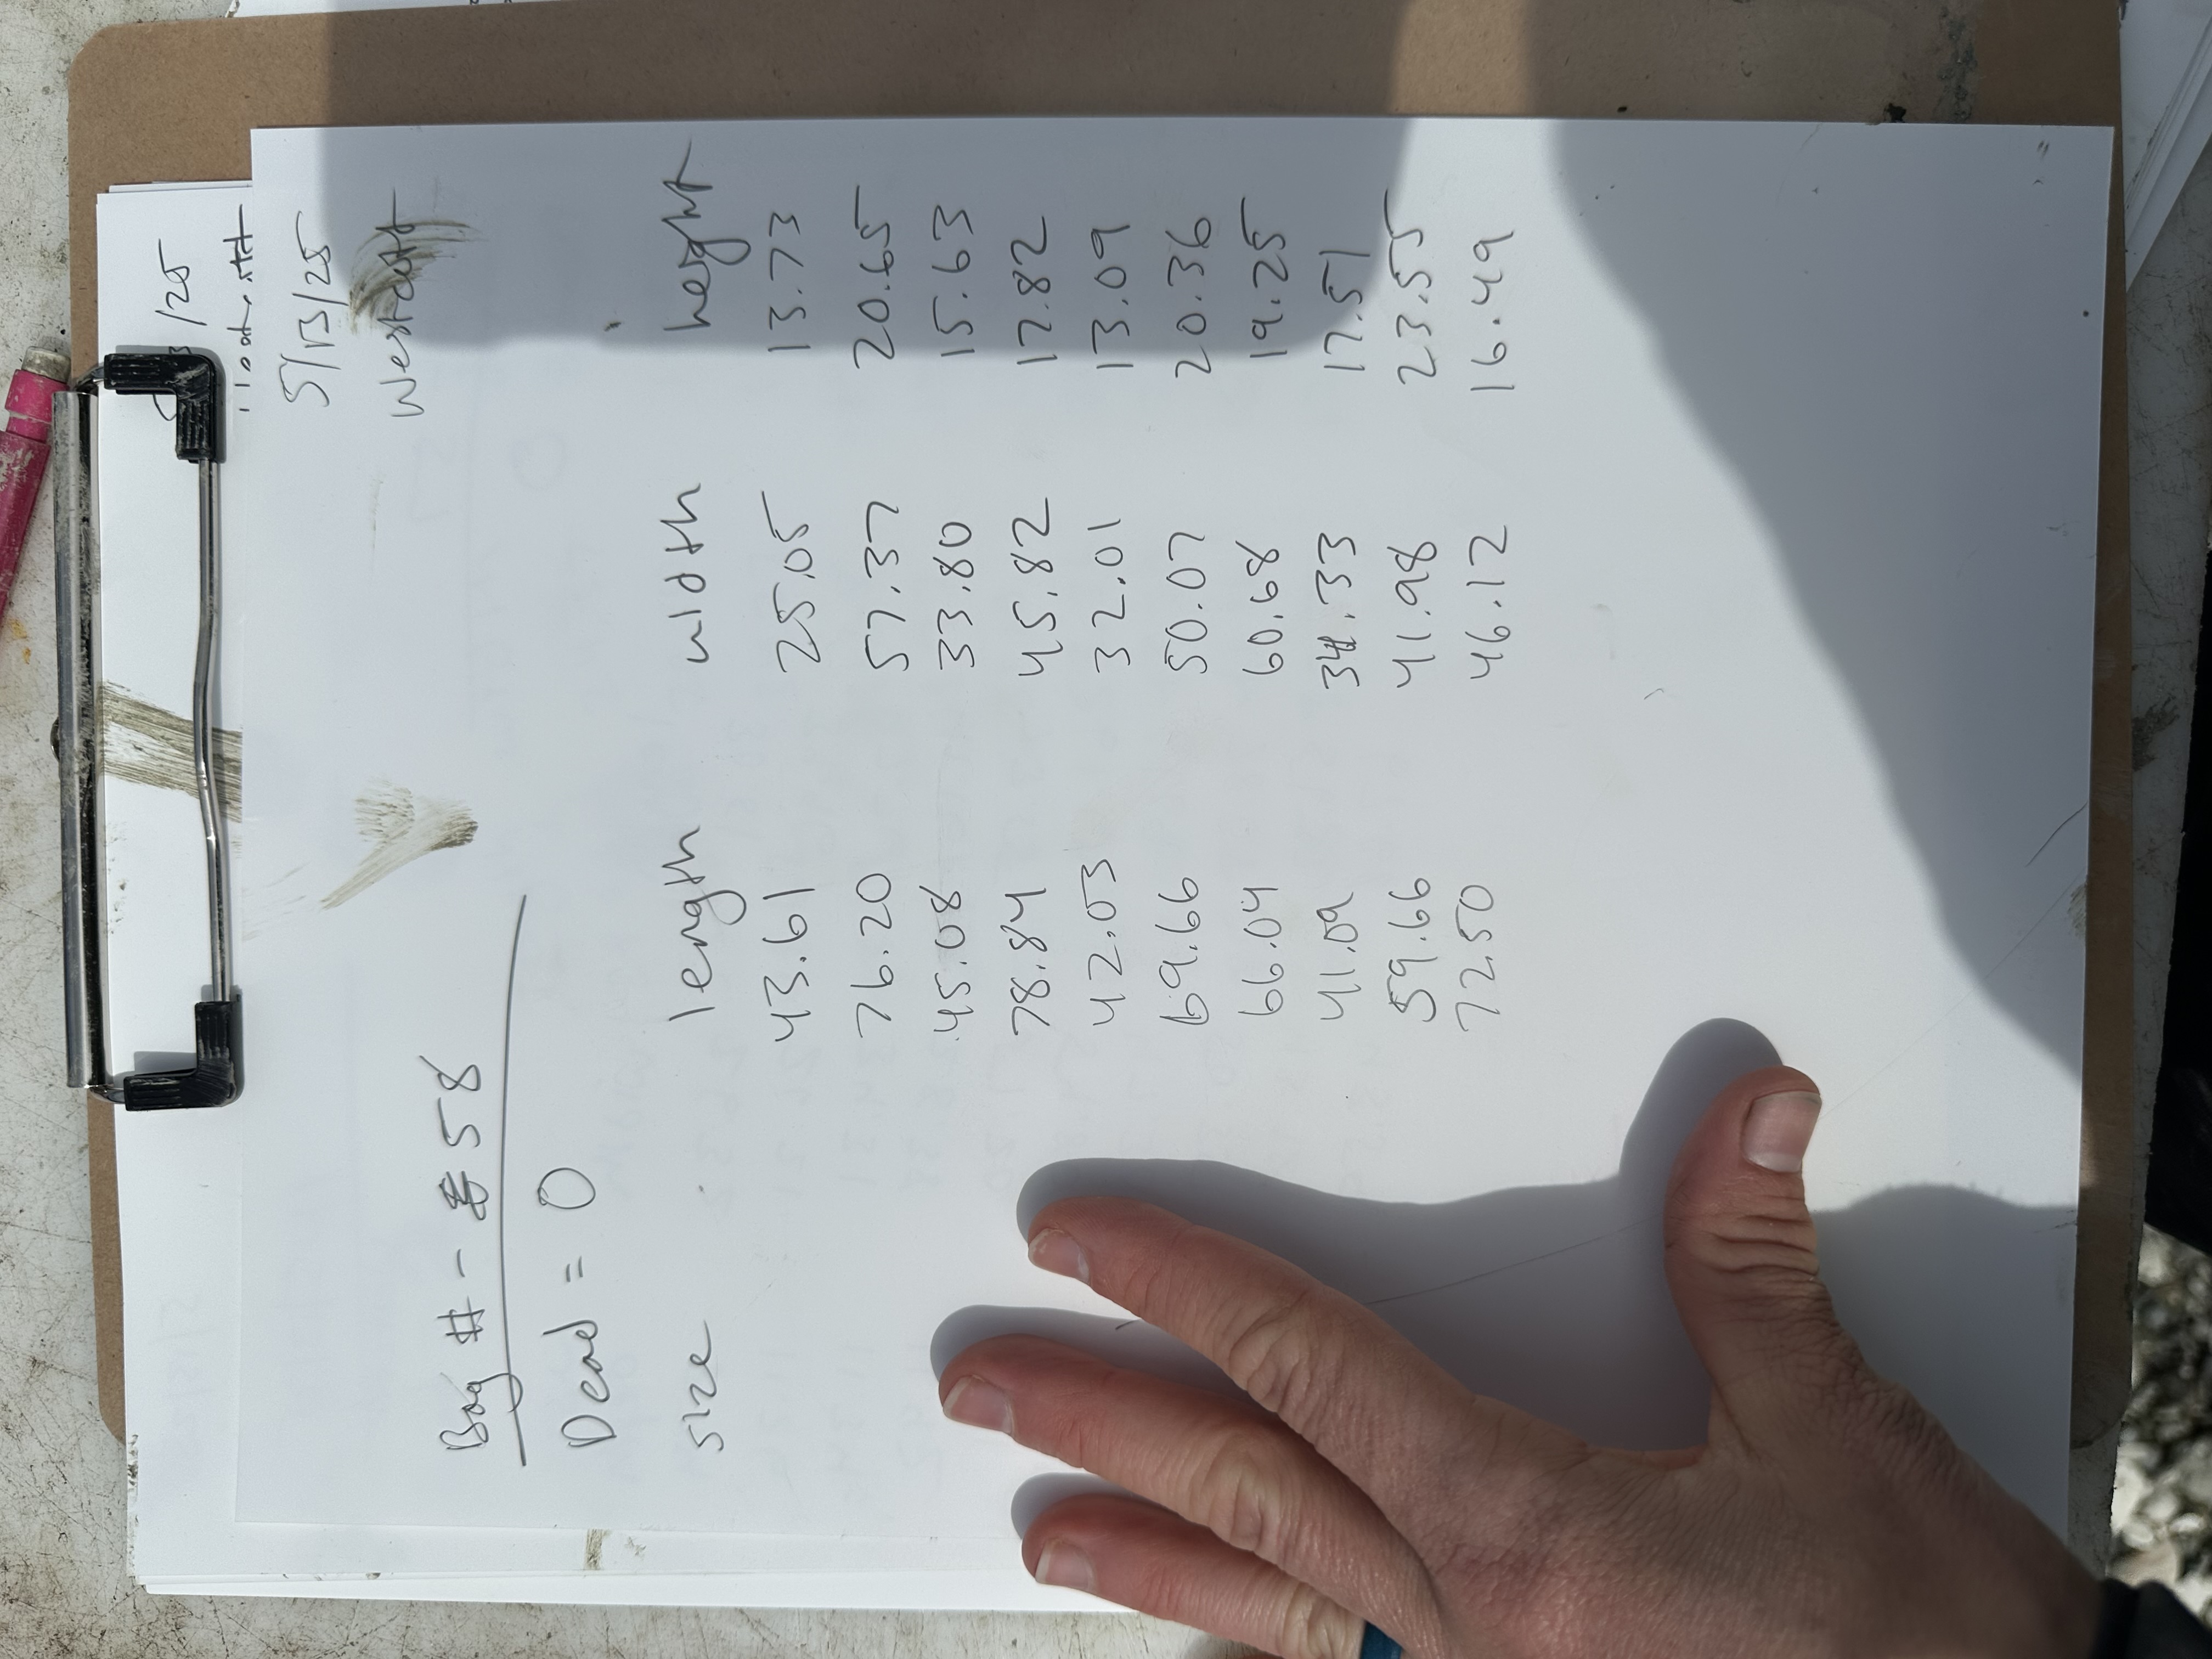 /25
5/13/25
Westcott
Bag # - 58
Dead = 0
size length width height
43.61 25.05 13.73
76.20 57.37 20.65
45.08 33.80 15.63
78.84 45.82 17.82
42.03 32.01 13.09
69.66 50.07 20.36
66.04 60.68 19.25
41.09 34.33 17.51
59.66 41.98 23.55
72.50 46.12 16.49